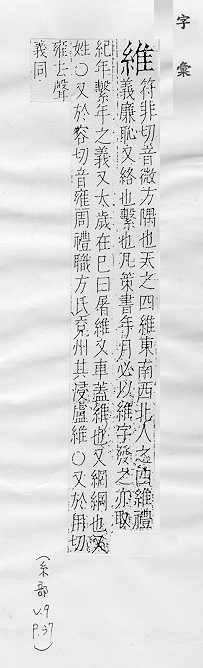 字彙
維
符非切音微方隅也天之四維東南西北人之四維禮
義廉恥又絡也繫也凡策書年月必以維字發之亦取
紀年繫年之義又太歲在巳曰屠維又車蓋維也又網綱也又
姓〇又於容切音雍周禮職方氏兗州其浸盧維〇又於用切
雍去聲
義同
(糸部
V.9
P.37)